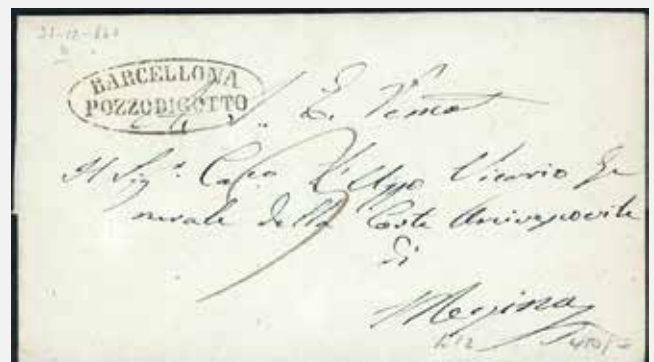 31-12-860
BARCELLONA
POZZODIGOTTO
A S. E. Vema
Il Sig.r Vicario Ge
nerale della Corte Arcivescovile
di
Messina